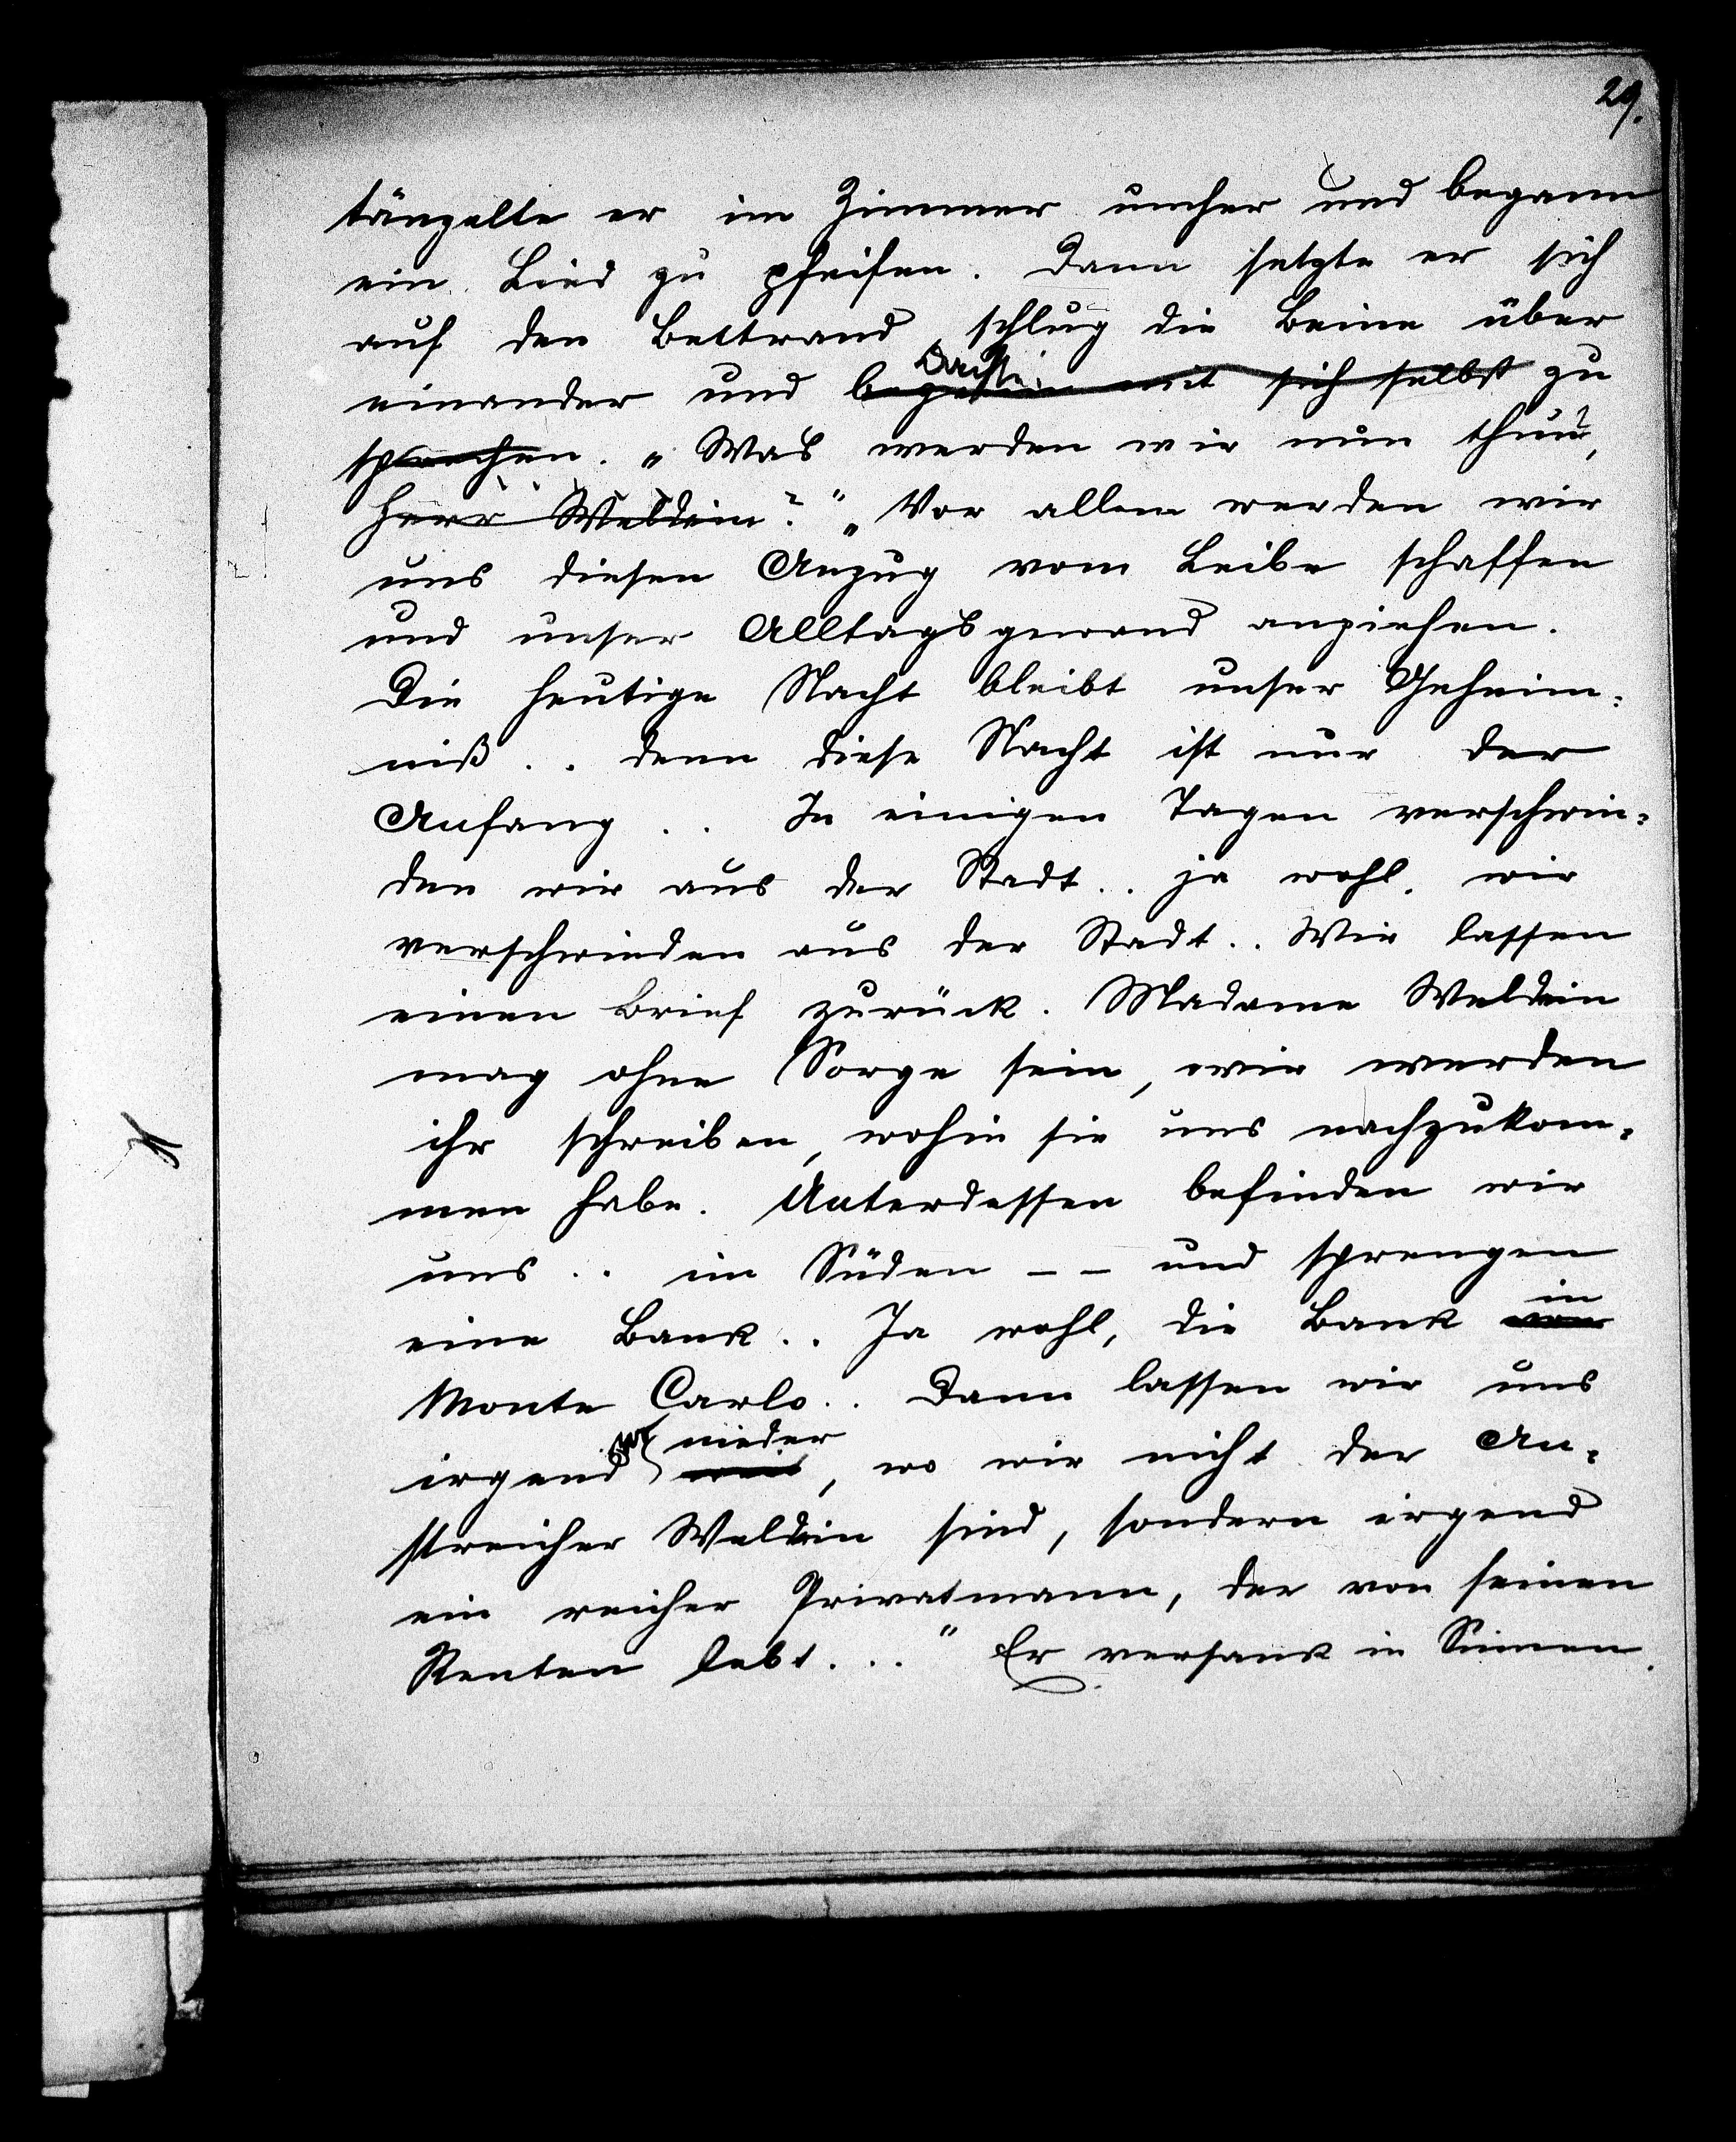 29.
tänzelte er im Zimmer umher und begann
ein Lied zu pfeifen. Dann setzte er sich
auf den Bettrand, schlug die Beine über
dachte:
einander und begann mit sich selbst zu
sprechen. „Was werden wir nun thun?,
Herr Weldein?" „Vor allem werden wir
uns diesen Anzug vom Leibe schaffen
und unser Alltagsgewand anziehen.
Die heutige Nacht bleibt unser Geheim=
niß .. denn diese Nacht ist nur der
Anfang .. In einigen Tagen verschwin=
den wir aus der Stadt.. ja wohl. wir
verschwinden aus der Stadt.. Wir lassen
einen Brief zurück. Madame Weldein
mag ohne Sorge sein, wir werden
ihr schreiben, wohin sie uns nachzukom=
men habe. Unterdessen befinden wir
uns .. im Süden -- und sprengen
in
eine Bank.. Ja wohl, die Bank von
Monte Carlo.. Dann lassen wir uns
wo nieder
irgend weit, wo wir nicht der An=
streicher Weldein sind, sondern irgend
ein reicher Privatmann, der von seinen
Renten lebt..." Er versank in Sinnen.